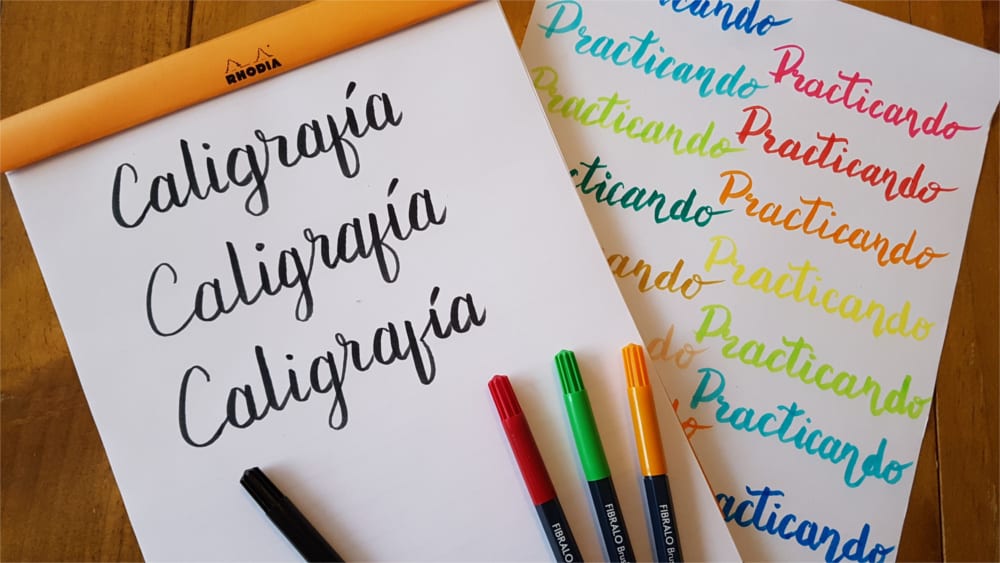 RHODIA
Caligrafía
Caligrafía
Caligrafía
icando
Practicando
Practicando
Practicando
Practicando
cticando
Practicando
ando
Practicando
do
Practicando
Practicando
acticando
FIBRALO
FIBRALO Brus
FIBRALO Brus